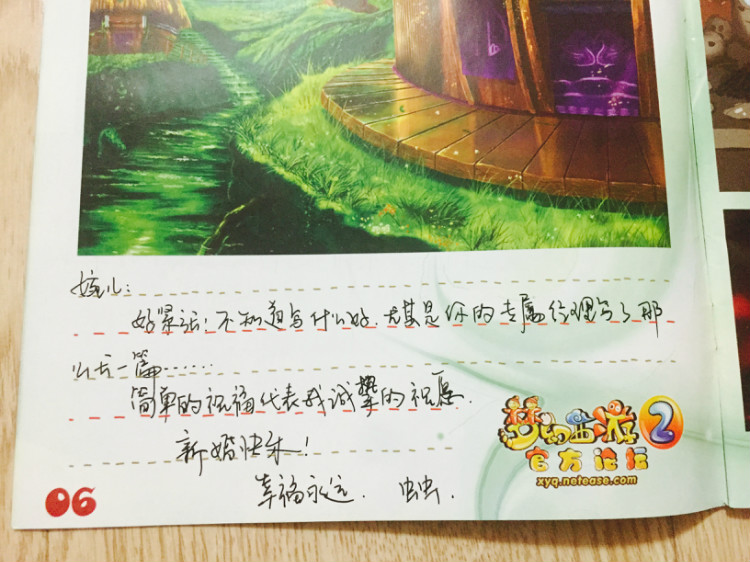 婉儿:
好紧张!不知道写什么好.尤其是你的专属经理写了那
么长一篇……
简单的祝福代表我诚挚的祝愿.
新婚快乐!
幸福永远. 虫虫.
梦幻西游2
官方论坛
xyq.netease.com
06